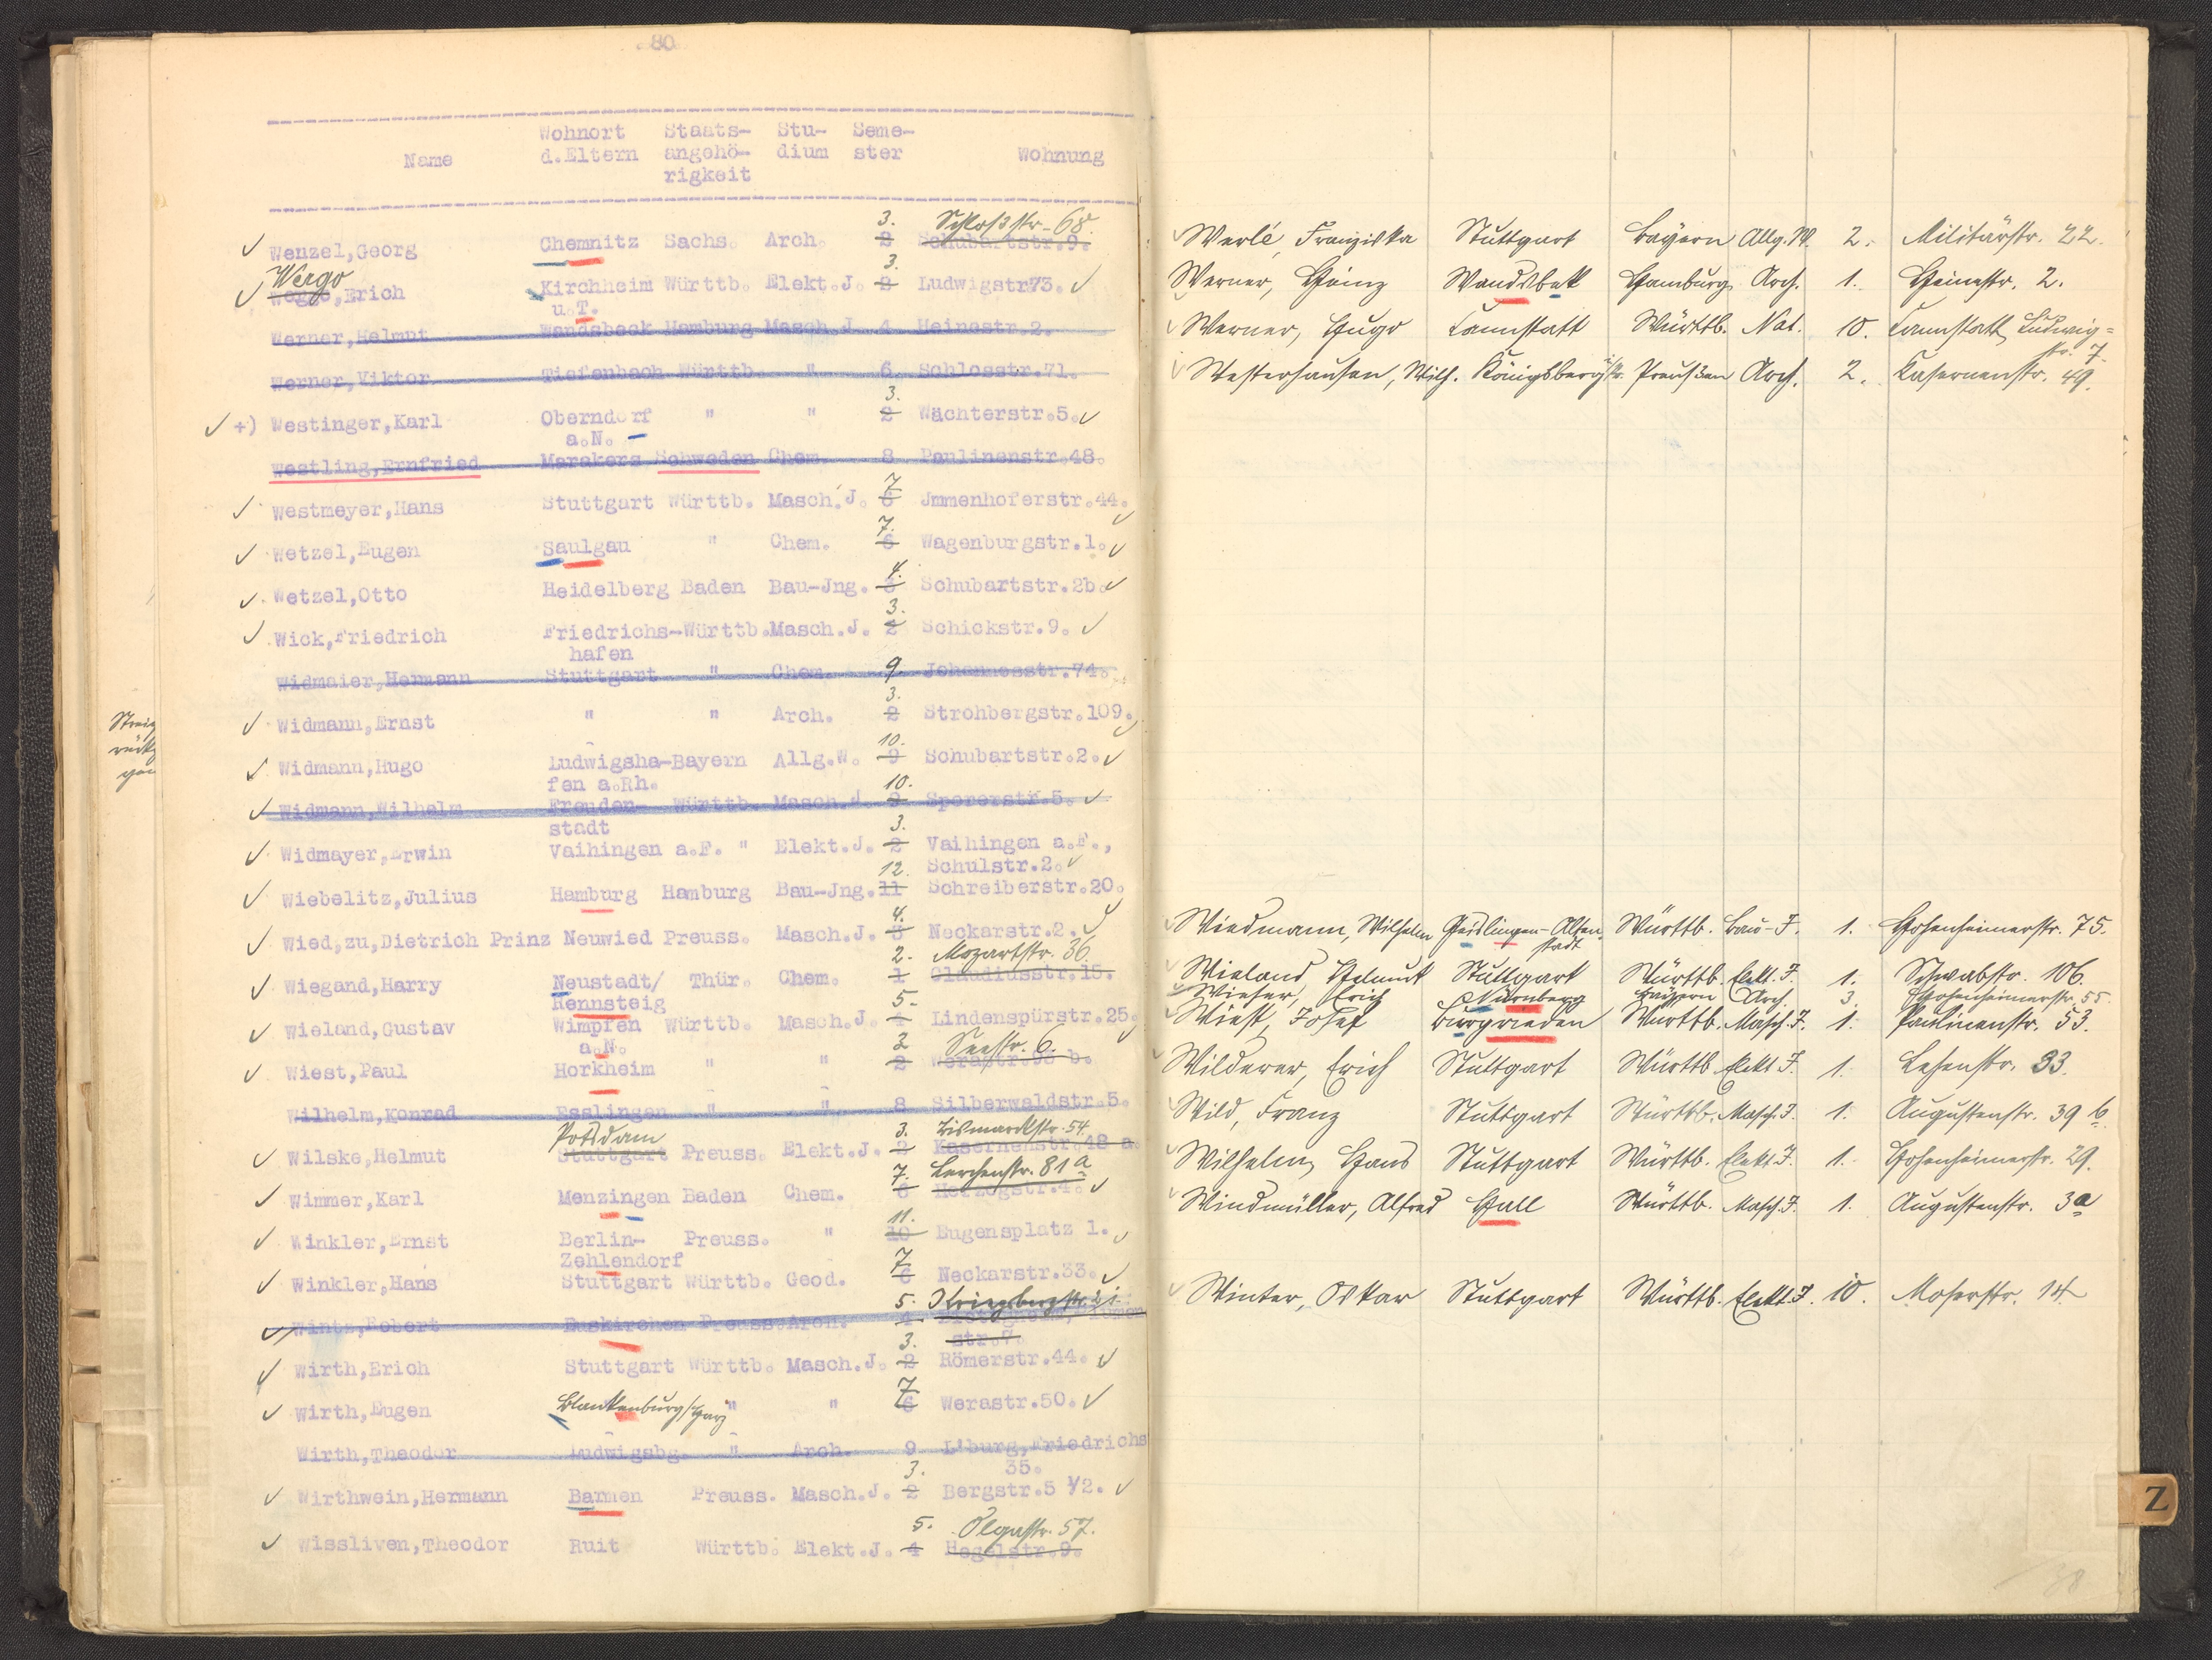 80
Wohnort Staats- Stu- Seme-
Name d.Eltern angehö- dium ster Wohnung
rigkeit
3. Schloßstr. 68.
Wenzel,Georg Chemnitz Sachs. Arch. 2 Schubartstr.9.
Wergo 3.
,Erich Kirchheim Württb. Elekt.J. 2 Ludwigstr.73.
u.T.
Werner,Helmut Wandsbeck Hamburg Masch.J. 4 Heinestr.2.
Werner,Viktor Tiefenbach Württb. " 6 Schlosstr.71.
3.
+) Westinger,Karl Oberndorf " " 2 Wächterstr.5.
a.N.
Westling,Ernfried Marakers Schweden Chem. 8 Paulinenstr.48.
7
Westmeyer,Hans Stuttgart Württb. Masch.J. 6 Jmmenhoferstr.44.
7.
Wetzel,Eugen Saulgau " Chem. 6 Wagenburgstr.1.
4.
Wetzel,Otto Heidelberg Baden Bau-Jng. 3 Schubartstr.2b.
3.
Wick,Friedrich Friedrichs-Württb.Masch.J. 2 Schickstr.9.
hafen
Widmaier,Hermann Stuttgart " Chem. 9 Johannesstr.74.
3.
Widmann,Ernst " " Arch. 2 Strohbergstr.109.
10.
Widmann,Hugo Ludwigsha-Bayern Allg.W. 9 Schubartstr.2.
fen a.Rh. 10.
Widmann,Wilhelm Freuden- Württb. Masch.J. 9 Spererstr.5.
stadt 3.
Widmayer,Erwin Vaihingen a.F. " Elekt.J. 2 Vaihingen a.F.,
12. Schulstr.2.
Wiebelitz,Julius Hamburg Hamburg Bau-Jng. 11 Schreiberstr.20.
4.
Wied,zu,Dietrich Prinz Neuwied Preuss. Masch.J. 3 Neckarstr.2.
2. Mozartstr. 36.
Wiegand,Harry Neustadt/ Thür. Chem. 1 Claudiusstr.15.
Rennsteig 5.
Wieland,Gustav Wimpfen Württb. Masch.J. 4 Lindenspürstr.25.
a.N. 3 Seestr. 6.
Wiest,Paul Horkheim " " 2 Werastr.93 b.
Wilhelm,Konrad Esslingen " " 8 Silberwaldstr.5.
Potsdam 3. Bismarckstr. 54
Wilske,Helmut Stuttgart Preuss. Elekt.J. 2 Kasernenstr.48 a
7. Lerchenstr. 81a
Wimmer,Karl Menzingen Baden Chem. 6 Herzogstr.4.
11.
Winkler,Ernst Berlin- Preuss. " 10 Eugensplatz 1.
Zehlendorf 7
Winkler,Hans Stuttgart Württb. Geod. 6 Neckarstr.33.
5. Kriegsbergstr. 21
Wintz,Robert Euskirchen Preuss.Arch. 4.
3. str.7
Wirth,Erich Stuttgart Württb. Masch.J. 2 Römerstr.44.
7
Wirth,Eugen Blankenburg/Harz " " 6 Werastr.50.
Wirth,Theodor Ludwigsbg. " Arch. 9 L'burg,Friedrichs
3. 35.
Wirthwein,Hermann Barmen Preuss. Masch.J. 2 Bergstr.5 1/2.
5. Olgastr. 57.
Wissliven,Theodor Ruit Württb. Elekt.J. 4 Hegelstr.9.
Werlé, Franziska Stuttgart Bayern Allg.W. 2. Militärstr. 22.
Werner, Heinz Wandsbek Hamburg Arch. 1. Heinestr. 2.
Werner, Hugo Cannstatt Württb. Nat. 10. Cannstatt, Ludwig-
str. 7.
Westerhausen, Wilh. Königsberg i/Pr. Preußen Arch. 2. Kasernenstr. 49.
Wiedmann, Wilhelm Geislingen-Alten- Württb. Bau-J. 1. Hohenheimerstr. 75.
stadt
Wieland Helmut Stuttgart Württb. Elekt.J. 1. Schwabstr. 106.
Erich Nürnberg Bayern Arch. 3. Hohenheimerstr. 55.
Wiest, Josef Burgrieden Württb. Masch.J. 1. Paulinenstr. 53.
Wilderer, Erich Stuttgart Württb. Elekt.J. 1. Lehenstr. 33.
Wild, Franz Stuttgart Württb. Masch.J. 1. Augustenstr. 39 b.
Wilhelm, Hans Stuttgart Württb. Elekt.J. 1. Hohenheimerstr. 29.
Windmüller, Alfred Hall Württb. Masch.J. 1. Augustenstr. 3a
Winter, Oskar Stuttgart Württb. Elekt.J. 10. Moserstr. 14
Z
38